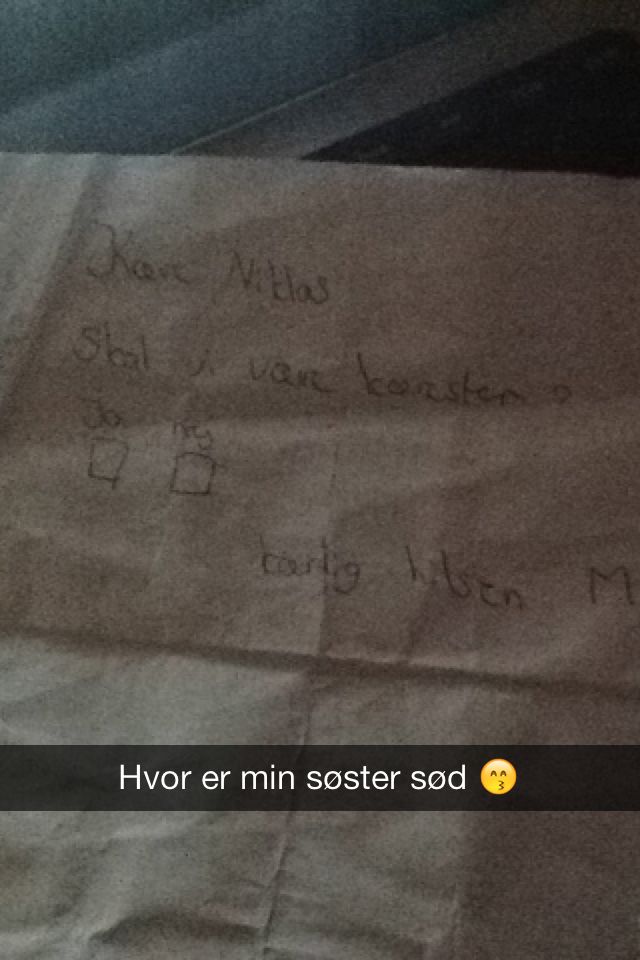 Kære Niklas
Skal vi være kærester?
Ja nej
kærlig hilsen M
Hvor er min søster sød 😙